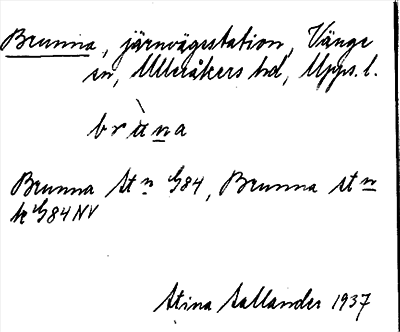 Brunna, järnvägsstation, Vänge
sn, Ulleråkers hd, Upps. l.
brùna
Brunna St n G84, Brunna st n
k G84 NV
Stina Sallander 1937